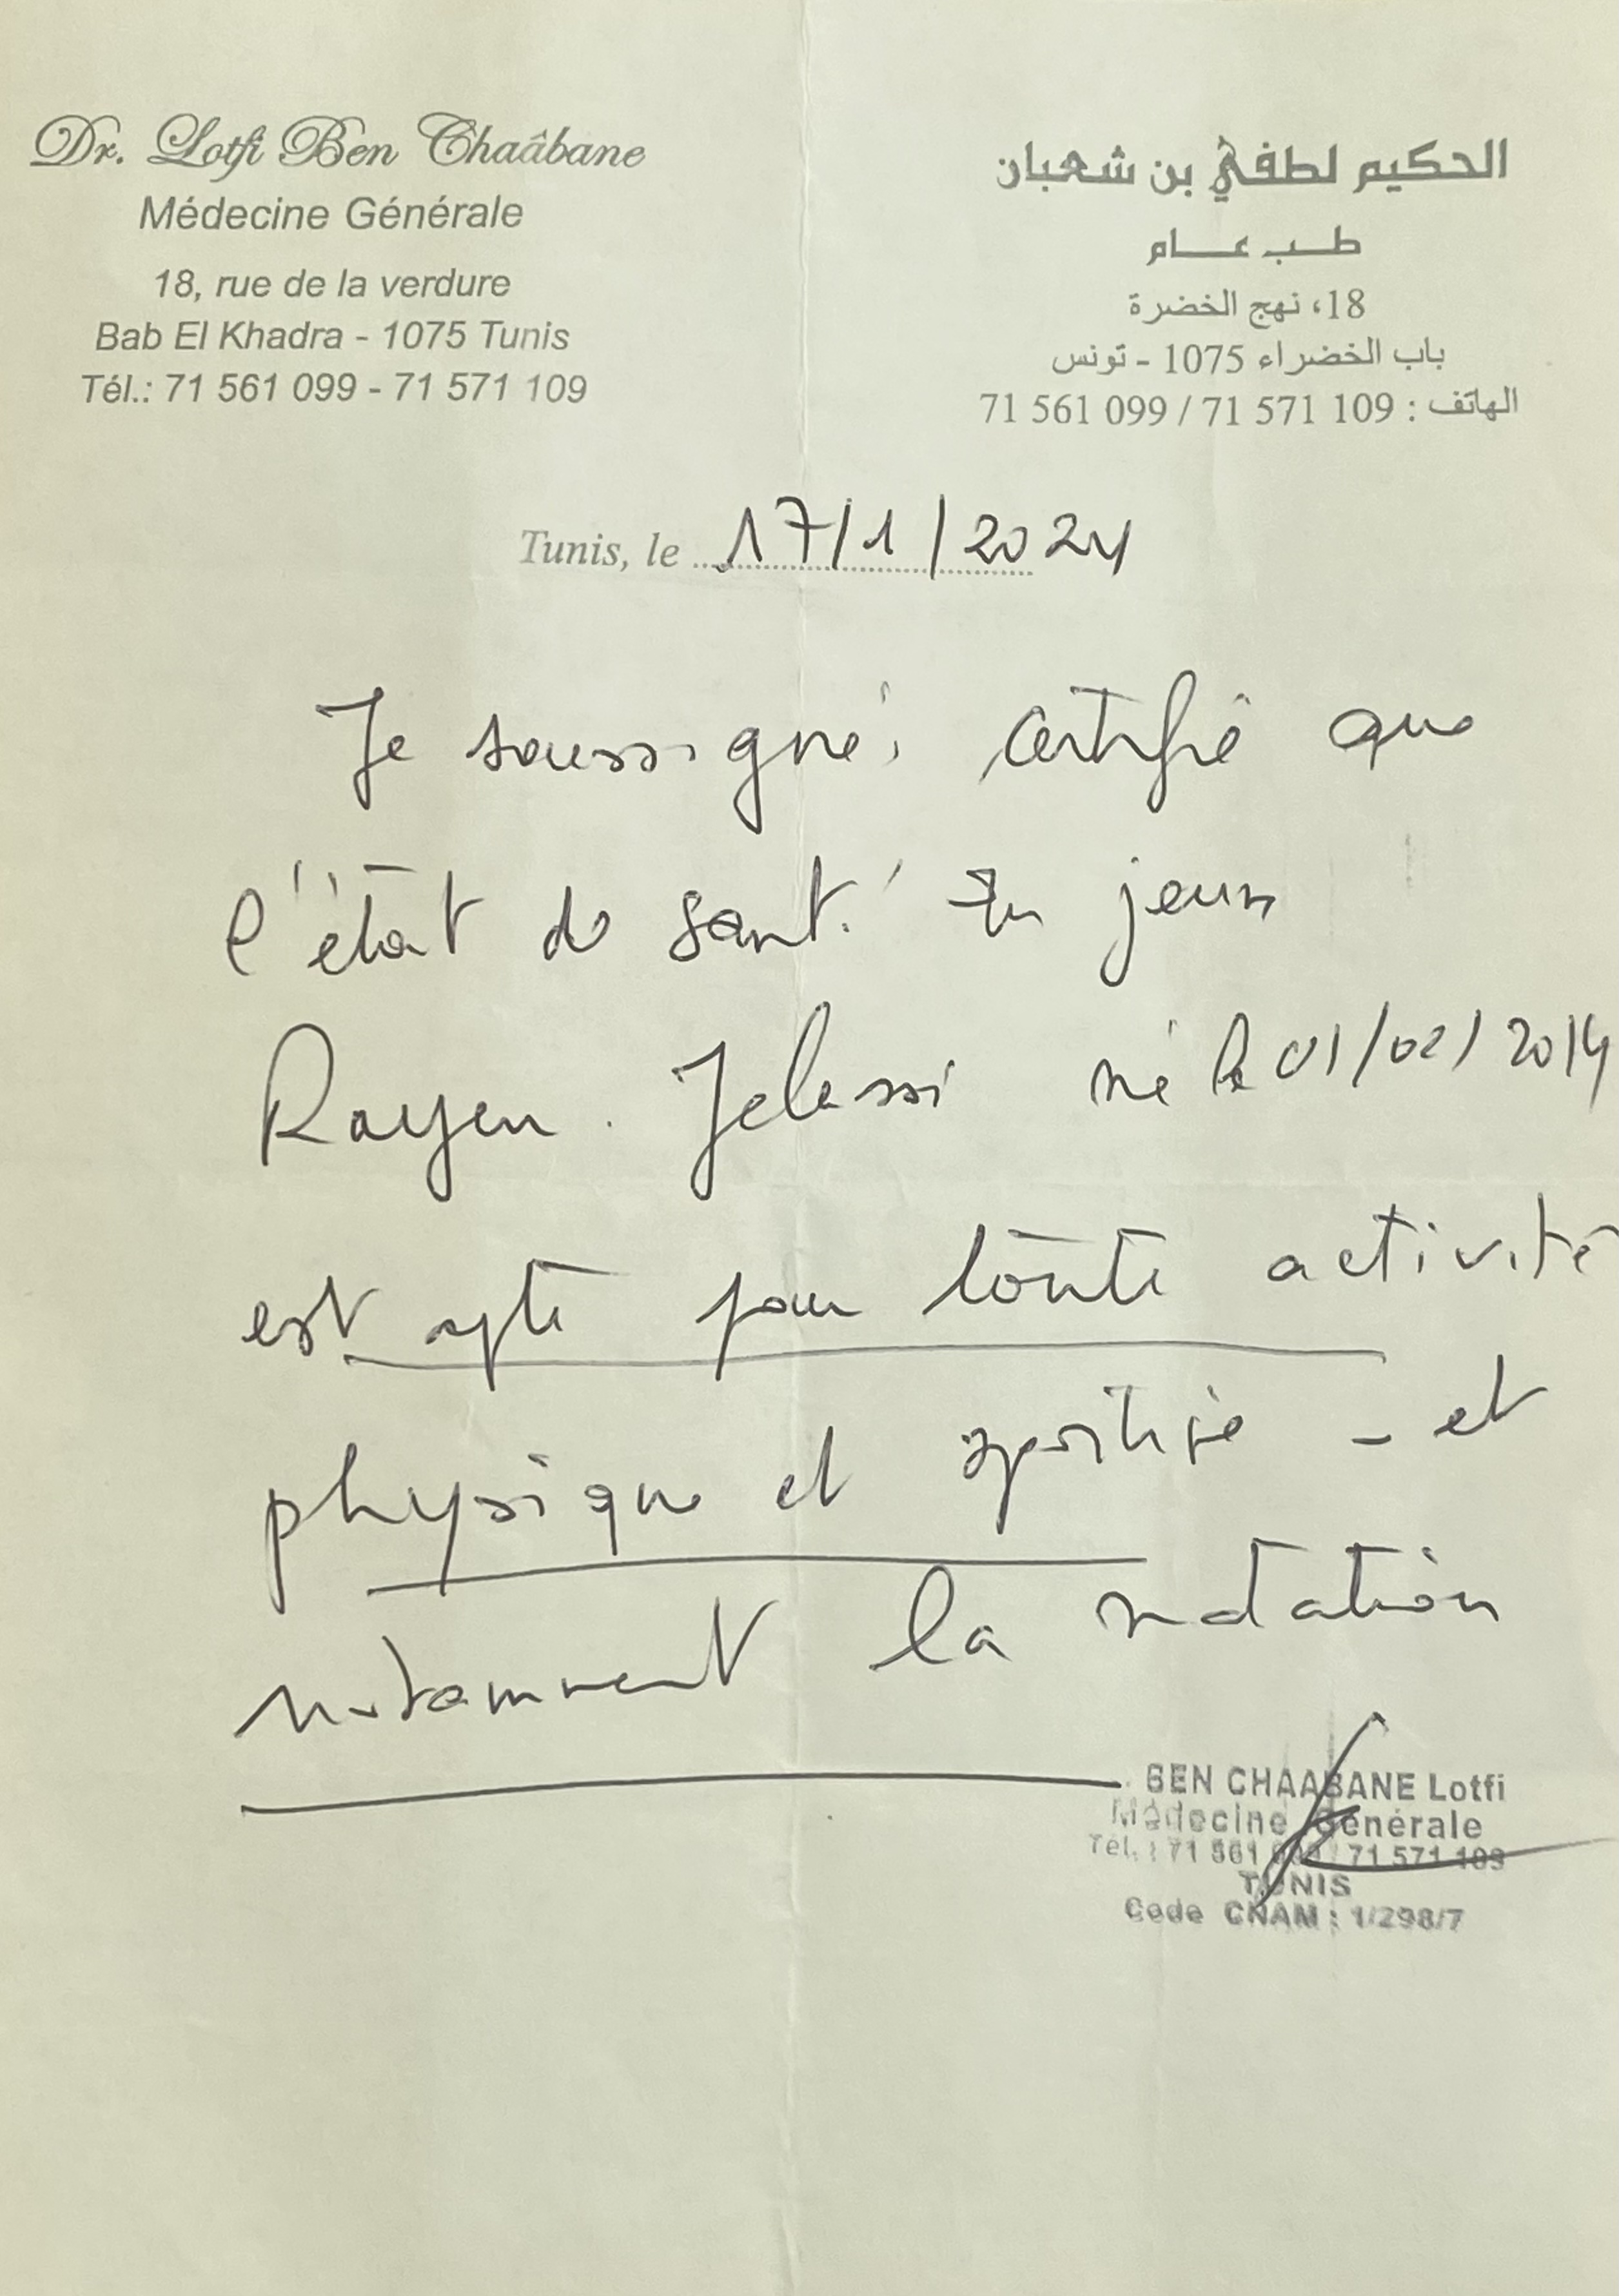 Dr. Lotfi Ben Chaâbane
Médecine Générale
18, rue de la verdure
Bab El Khadra - 1075 Tunis
Tél.: 71 561 099 - 71 571 109
الحكيم لطفي بن شعبان
طب عام
18، نهج الخضرة
باب الخضراء 1075 - تونس
الهاتف : 109 571 71 / 099 561 71
Tunis, le 17/1/2024
Je soussigné, certifie que
l'état de santé du jeune
Rayen Jelassi né le 01/02/2014
est apte pour toute activité
physique et sportive - et
notamment la natation
BEN CHAABANE Lotfi
Médecine Générale
Tél. : 71 561 099 / 71 571 109
TUNIS
Code CNAM : 1/298/7